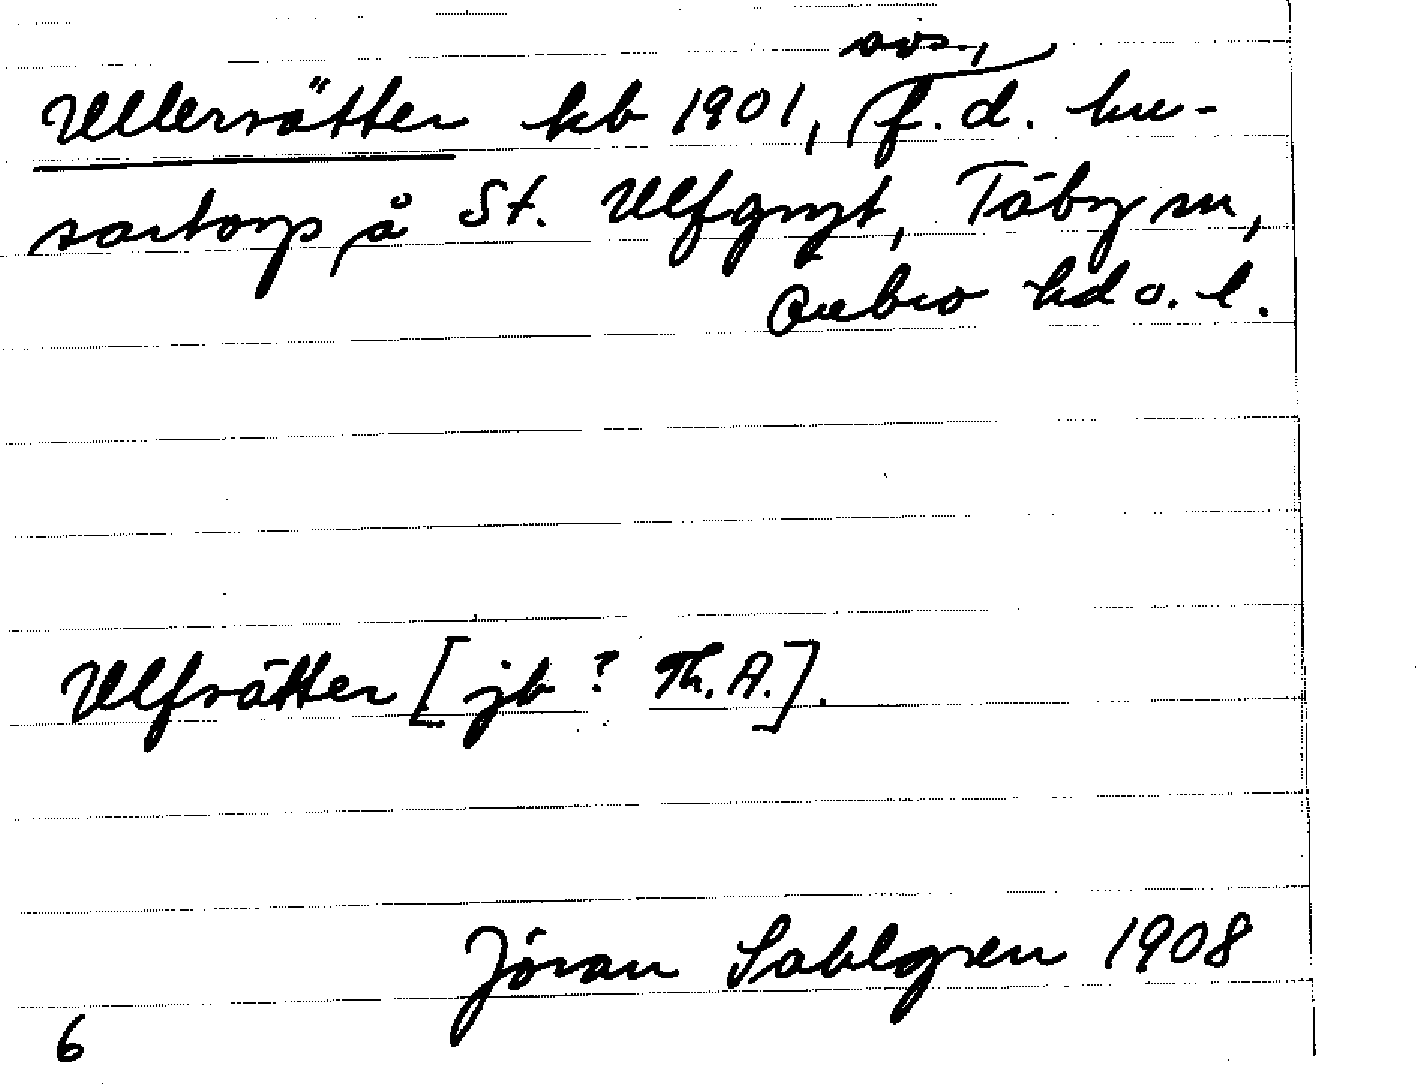 avs.,
Ullervätter kb 1901, f.d. hu-
sartorp å St. Ulfgryt, Täby sn,
Örebro hd o. l.
Ulfvätter [jb ? Th. A.].
Jöran Sahlgren 1908
6